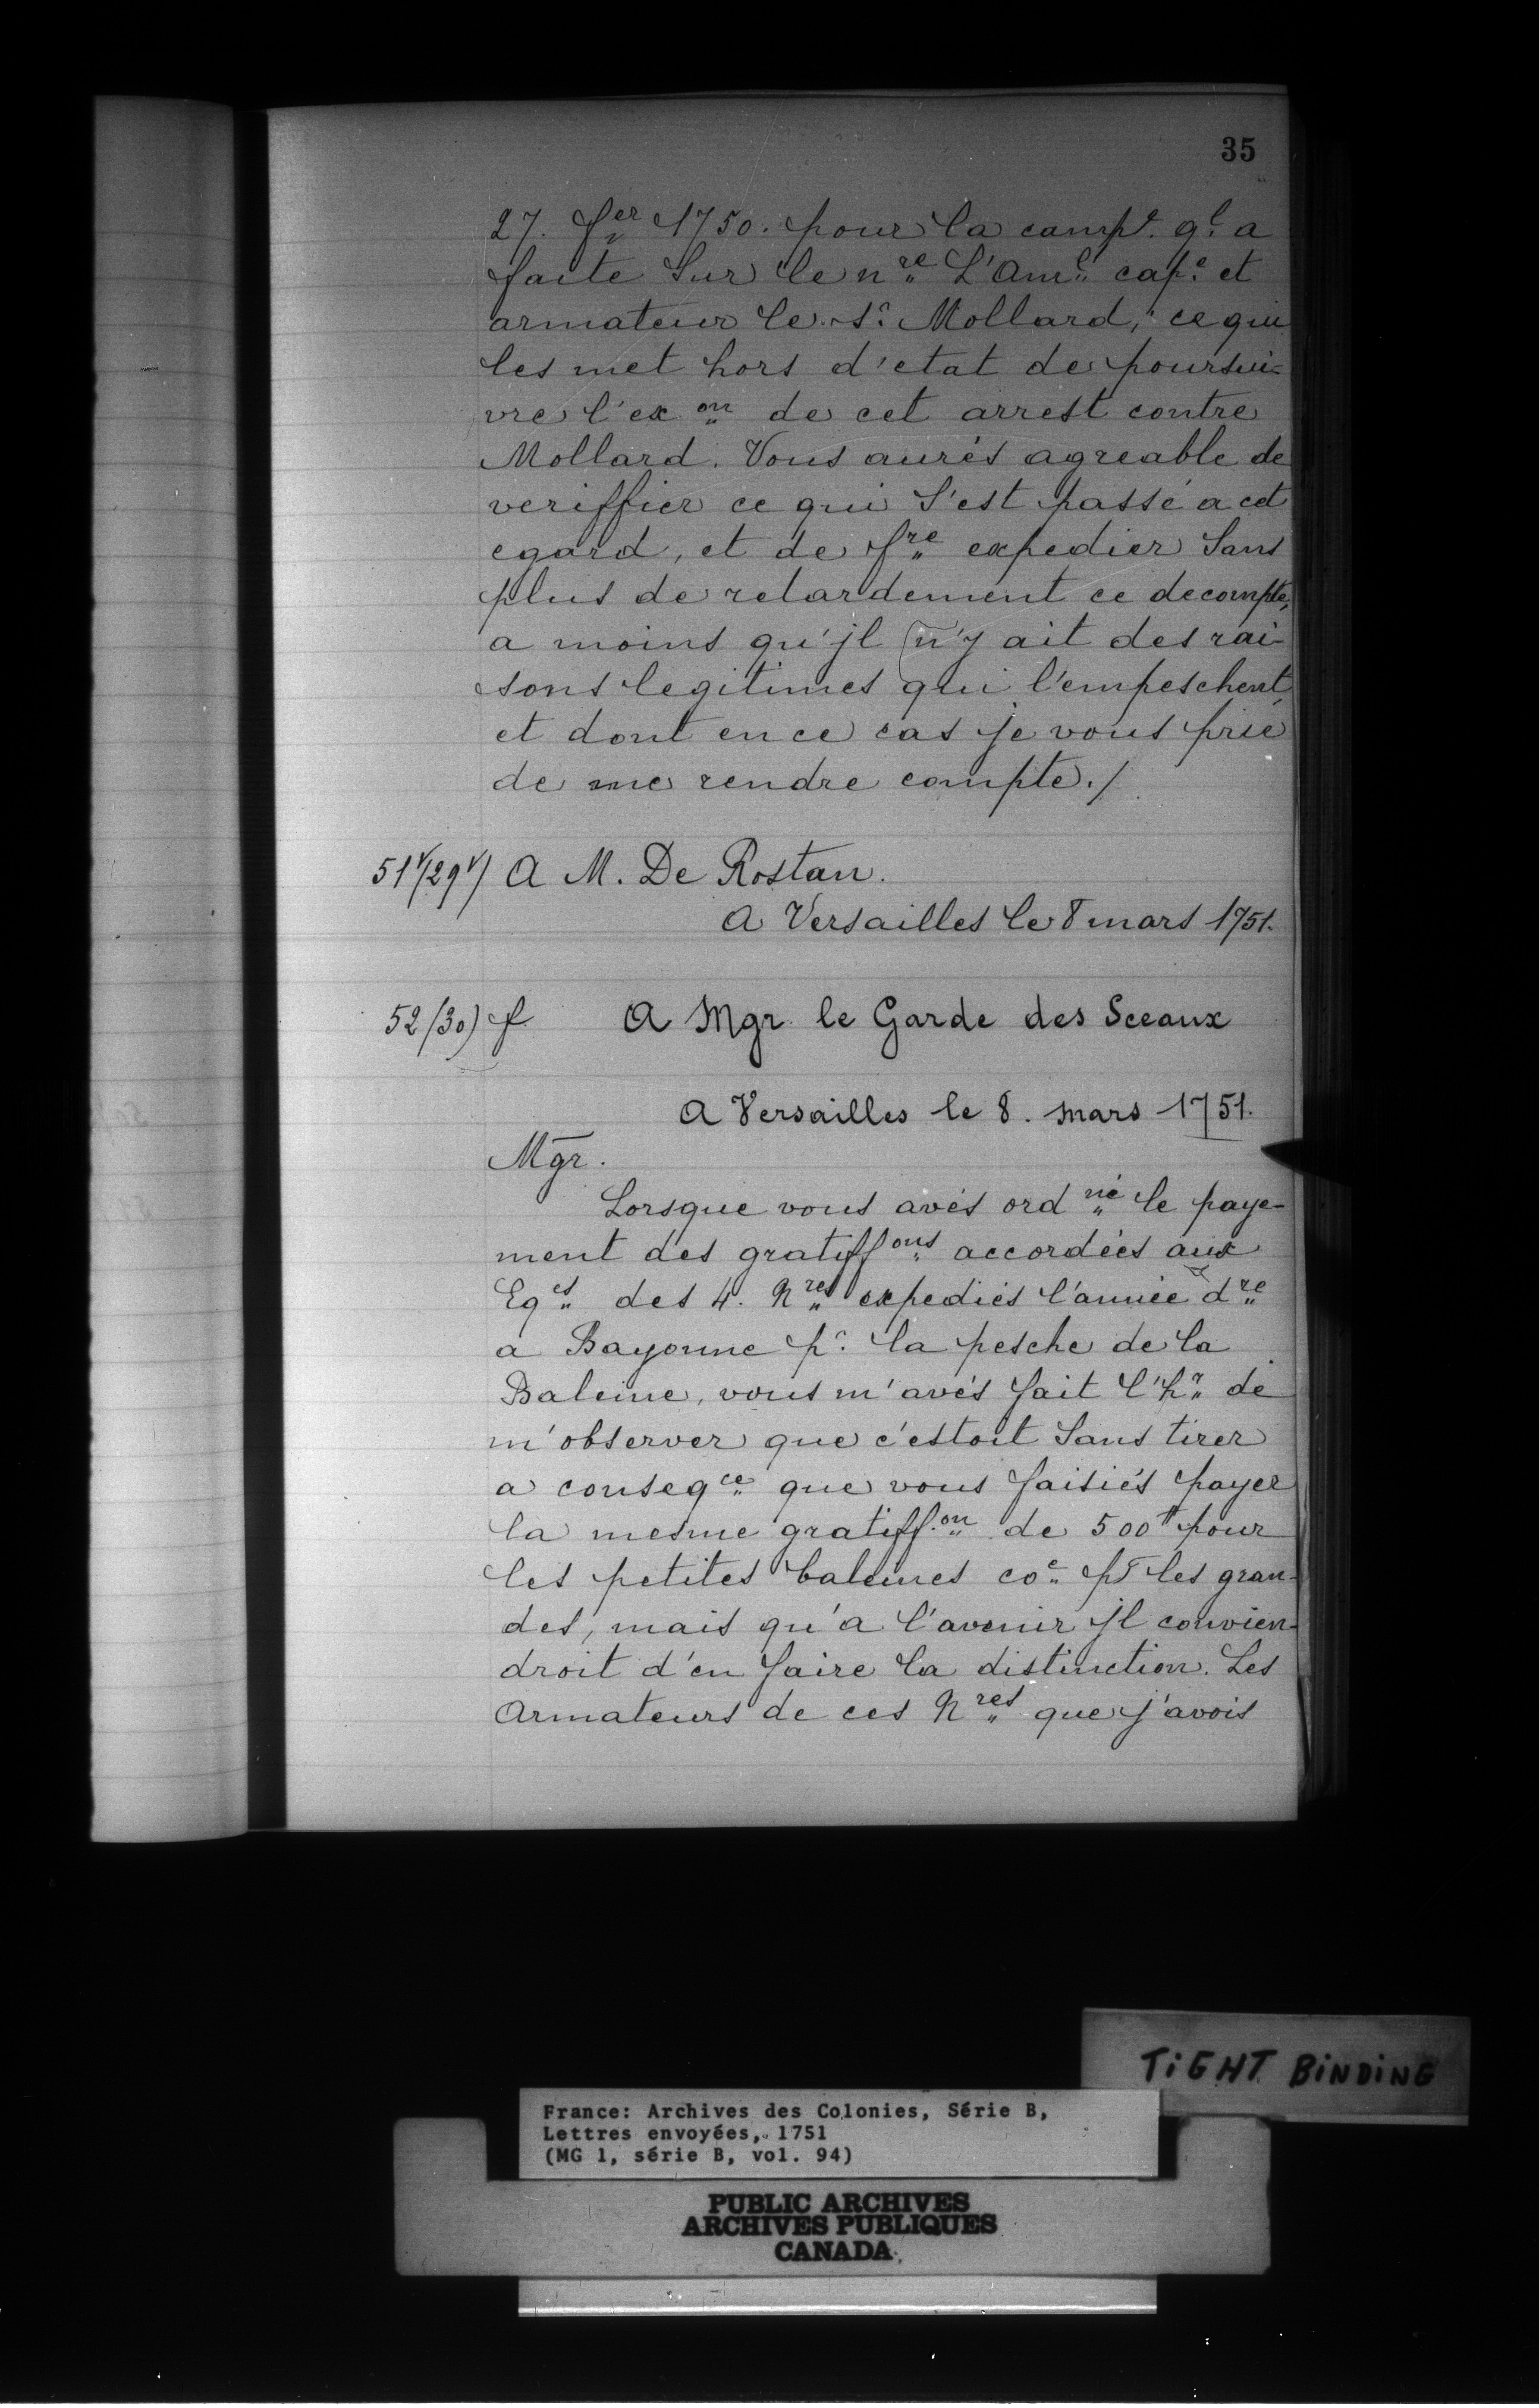 35
27. fer 1750. pour la campe. ql. a
faite sur le nre L'Aml capne et
armateur le Sr. Mollard, ce qui
les met hors d'etat de poursui=
vre l'exon de cet arrest contre
Mollard. Vous aurés agreable de
veriffier ce qui s'est passé a cet
egard, et de fre expedier sans
plus de retardement ce decompte,
a moins qu'jl n'y ait des rai-
sons legitimes qui l'empeschent,
et dont en ce cas je vous prie
de me rendre compte./
51v/29v) A M. De Rostan.
A Versailles le 8 mars 1751.
52/30) f A Mgr le Garde des Sceaux
A Versailles le 8. mars 1751.
Mgr.
Lorsque vous avés ordné le paye-
ment des gratiffons accordées aux
Eqes des 4. Nres expediés l'année dre
a Bayonne pr. la pesche de la
Baleine, vous m'avés fait l'hr de
m'observer que c'estoit sans tirer
a conseqce que vous faisiés payer
la mesme gratiff.on de 500tt pour
les petites baleines coe pr les gran-
des, mais qu'a l'avenir jl convien-
droit d'en faire la distinction. Les
Armateurs de ces Nres que j'avois
TIGHT BINDING
France: Archives des Colonies, Série B,
Lettres envoyées, 1751
(MG 1, série B, vol. 94)
PUBLIC ARCHIVES
ARCHIVES PUBLIQUES
CANADA